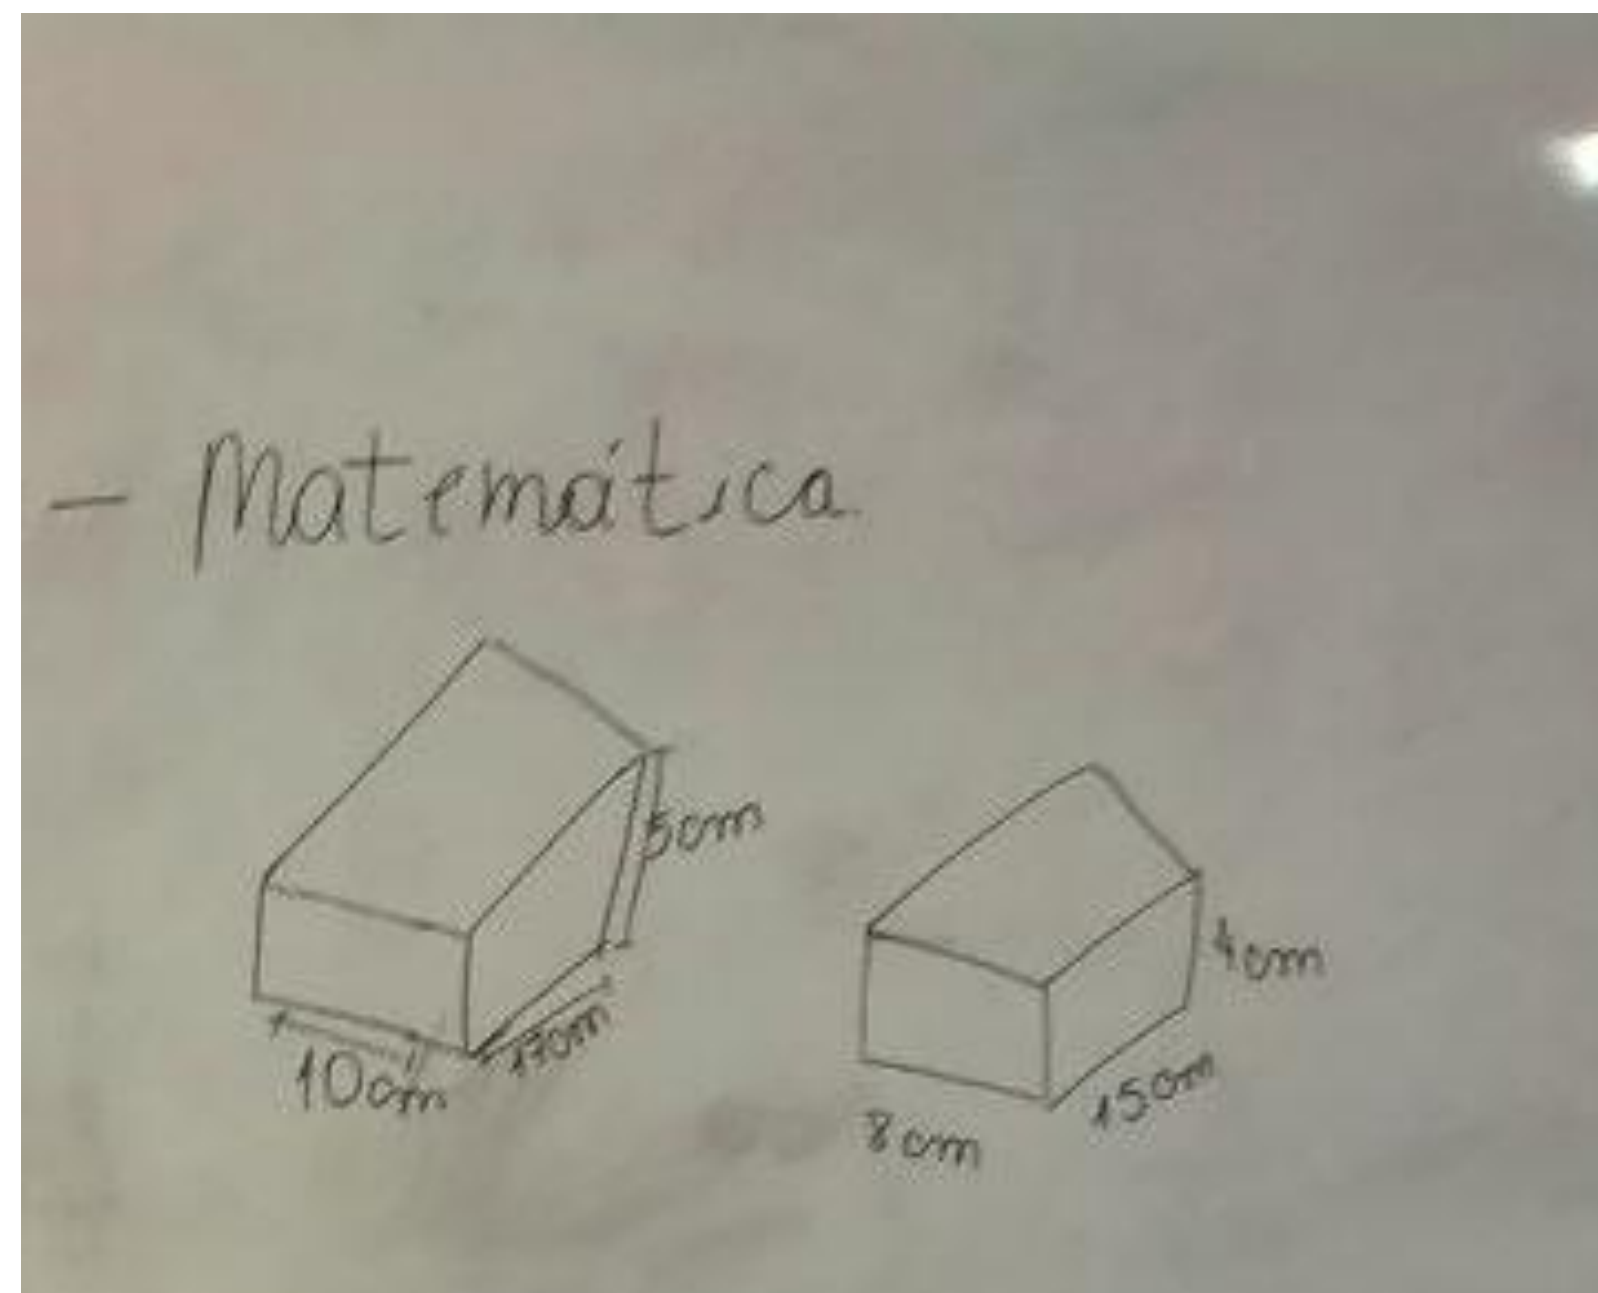 - Matemática
5cm
10cm
17cm
4cm
8cm
15cm